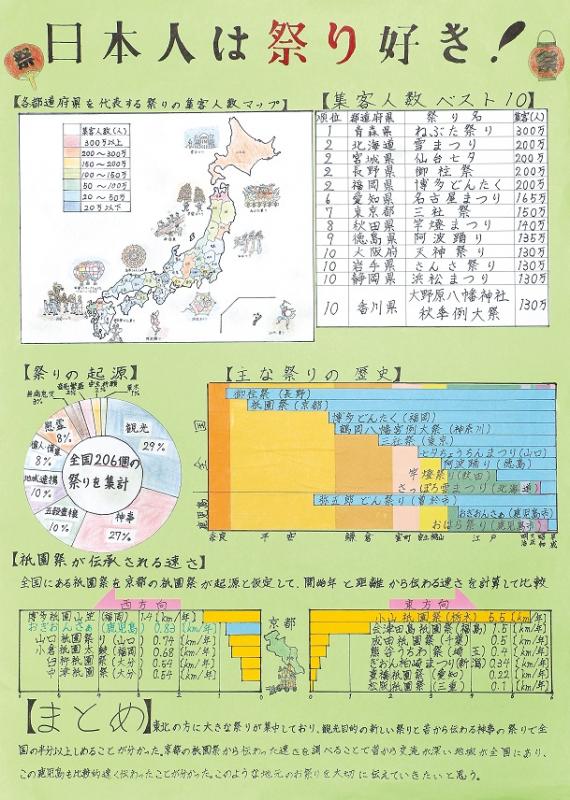 日本人は祭り好き!
祭
祭
【各都道府県を代表する祭りの集客人数マップ】
集客人数(人)
300万以上
200～300万
150～200万
100～150万
50～100万
20～50万
20万以下
【集客人数 ベスト10】
順位 都道府県 祭り名 集客(人)
1 青森県 ねぶた祭り 300万
2 北海道 雪まつり 200万
2 宮城県 仙台七夕 200万
2 長野県 御柱祭 200万
2 福岡県 博多どんたく 200万
6 愛知県 名古屋まつり 165万
7 東京都 三社祭 150万
8 秋田県 竿燈まつり 140万
9 徳島県 阿波踊り 135万
10 大阪府 天神祭り 130万
10 岩手県 さんさ祭り 130万
10 静岡県 浜松まつり 130万
10 香川県 大野原八幡神社 秋季例大祭 130万
【祭りの起源】
観光 29%
神事 27%
五穀豊穣 10%
地域連携 10%
偉人・偉業 8%
慰霊 8%
全国206個の
祭りを集計
【主な祭りの歴史】
全国
鹿児島
御柱祭(長野)
祇園祭(京都)
博多どんたく(福岡)
鶴岡八幡宮例大祭(神奈川)
三社祭(東京)
七夕ちょうちんまつり(山口)
阿波踊り(徳島)
竿燈祭り(秋田)
さっぽろ雪まつり(北海道)
弥五郎どん祭り(曽於市)
おぎおんさぁ(鹿児島市)
おはら祭り(鹿児島市)
奈良 平安 鎌倉 室町 安土桃山 江戸 明治 大正 昭和 平成
【祇園祭が伝承される速さ】
全国にある祇園祭を京都の祇園祭が起源と仮定して、開始年と距離から伝わる速さを計算して比較
西方向
東方向
京都
博多祇園山笠(福岡) 1.4(km/年)
おぎおんさぁ(鹿児島) 0.83(km/年)
山口祇園祭り(山口) 0.74(km/年)
小倉祇園太鼓(福岡) 0.68(km/年)
臼杵祇園祭(大分) 0.54(km/年)
中津祇園(大分) 0.54(km/年)
小山祇園祭(栃木) 5.5(km/年)
会津田島祇園祭(福島) 1.5(km/年)
成田祇園祭(千葉) 0.5(km/年)
熊谷うちわ祭(埼玉) 0.4(km/年)
ぎおん柏崎まつり(新潟) 0.34(km/年)
豊橋祇園祭(愛知) 0.22(km/年)
松阪祇園祭(三重) 0.1(km/年)
【まとめ】東北の方に大きな祭りが集中しており、観光目的の新しい祭りと昔から伝わる神事の祭りで全
国の半分以上しめることが分かった。京都の祇園祭から伝わった速さを調べることで昔から交流が深い地域が全国にあり、
この鹿児島も比較的速く伝わったことが分かった。このような地元のお祭りを大切に伝えていきたいと思う。